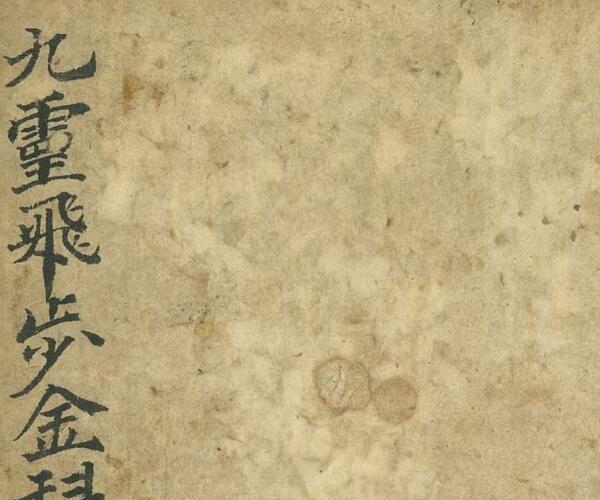 九靈飛步金